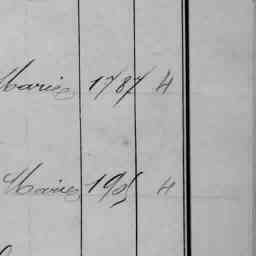 Marie 1787 4
Marie 190 4